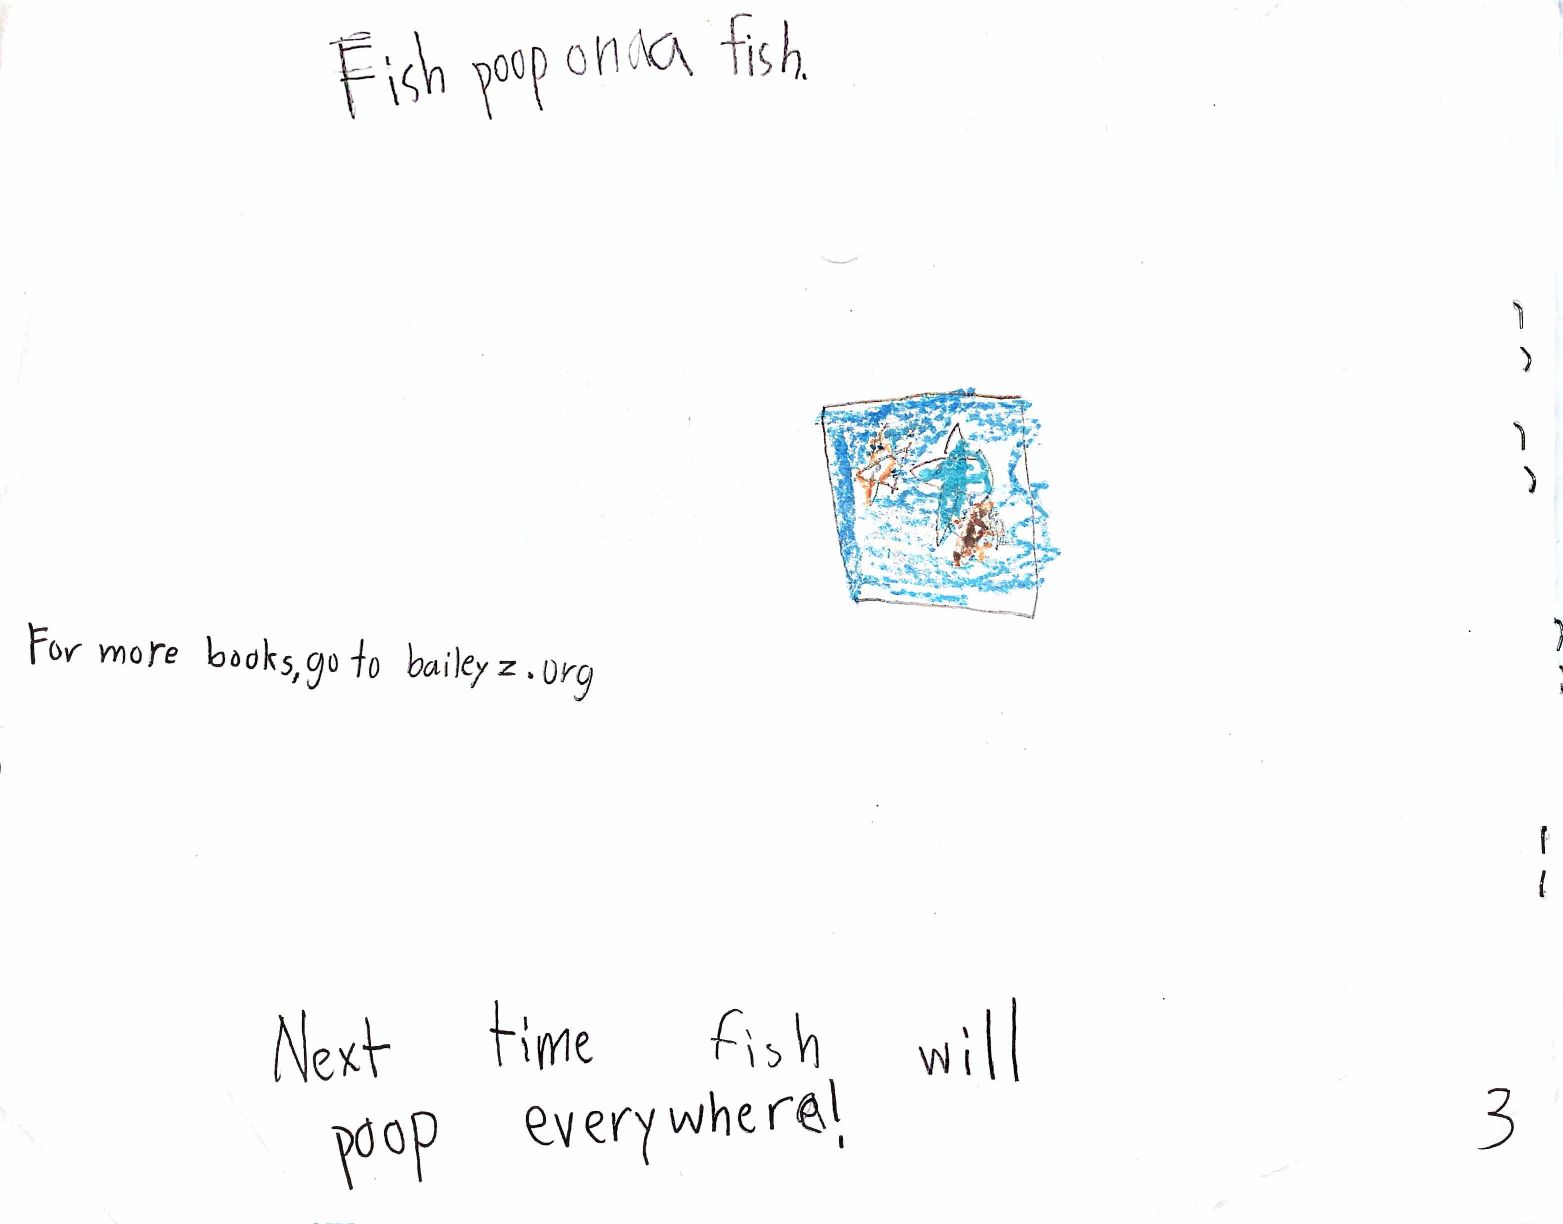 Fish poop on da fish.
For more books, go to baileyz.org
Next time fish will
poop everywhere!
3